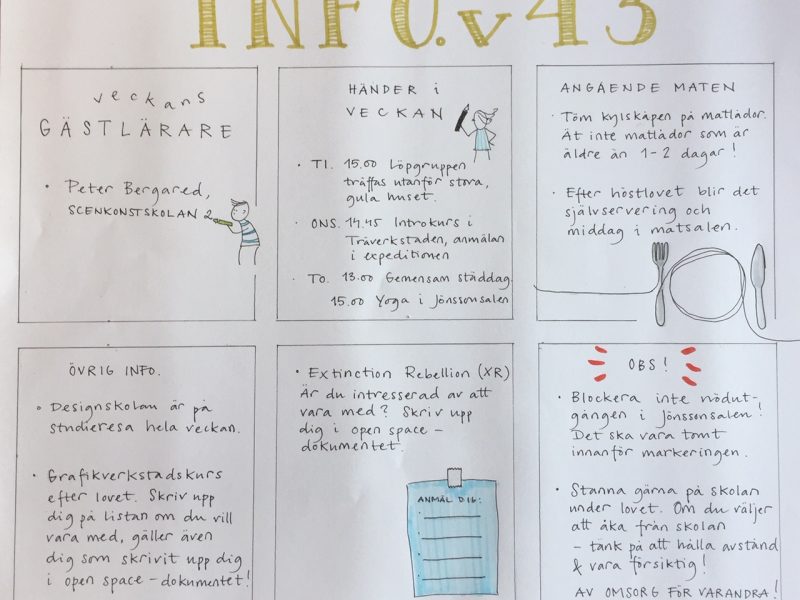 INFO.v43
veckans
GÄSTLÄRARE
• Peter Bergared,
SCENKONSTSKOLAN 2
HÄNDER i
VECKAN
• TI. 15.00 Löpgruppen
träffas utanför stora,
gula huset.
• ONS. 14.45 Introkurs i
Träverkstaden, anmälan
i expeditionen
• TO. 13.00 Gemensam städdag
15.00 Yoga i Jönssonsalen
ANGÅENDE MATEN
• Töm kylskåpen på matlådor.
Ät inte matlådor som är
äldre än 1-2 dagar!
• Efter höstlovet blir det
självservering och
middag i matsalen.
ÖVRIG INFO.
• Designskolan är på
studieresa hela veckan.
• Grafikverkstadskurs
efter lovet. Skriv upp
dig på listan om du vill
vara med, gäller även
dig som skrivit upp dig
i open space-dokumentet!
• Extinction Rebellion (XR)
Är du intresserad av att
vara med? Skriv upp
dig i open space-
dokumentet.
ANMÄL DIG:
OBS!
• Blockera inte nödut-
gången i Jönssonsalen!
Det ska vara tomt
innanför markeringen.
• Stanna gärna på skolan
under lovet. Om du väljer
att åka från skolan
- tänk på att hålla avstånd
& vara försiktig!
AV OMSORG FÖR VARANDRA!